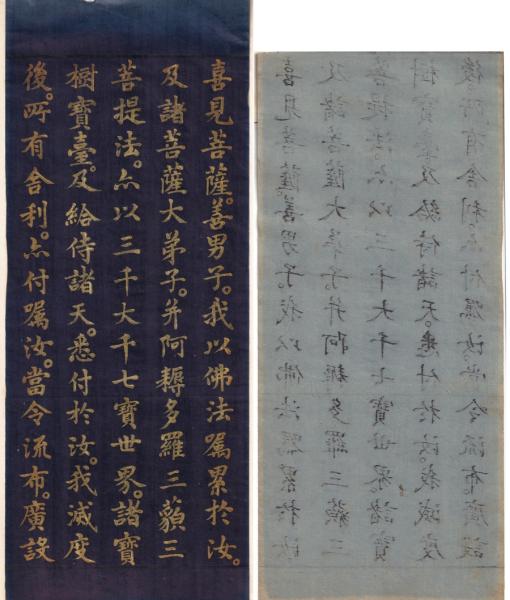 喜見菩薩。善男子。我以佛法嘱累於汝。
及諸菩薩大弟子。并阿耨多羅三藐三
菩提法。亦以三千大千七寶世界。諸寶
樹寶臺。及給侍諸天。悉付於汝。我滅度
後。所有舍利。亦付嘱汝。當令流布。廣設
喜見菩薩。善男子。我以佛法嘱累於汝
及諸菩薩大弟子。并阿耨多羅三藐三
菩提法。亦以三千大千七寶世界。諸寶
樹寶臺。及給侍諸天。悉付於汝。我滅度
後。所有舍利。亦付嘱汝。當令流布。廣設